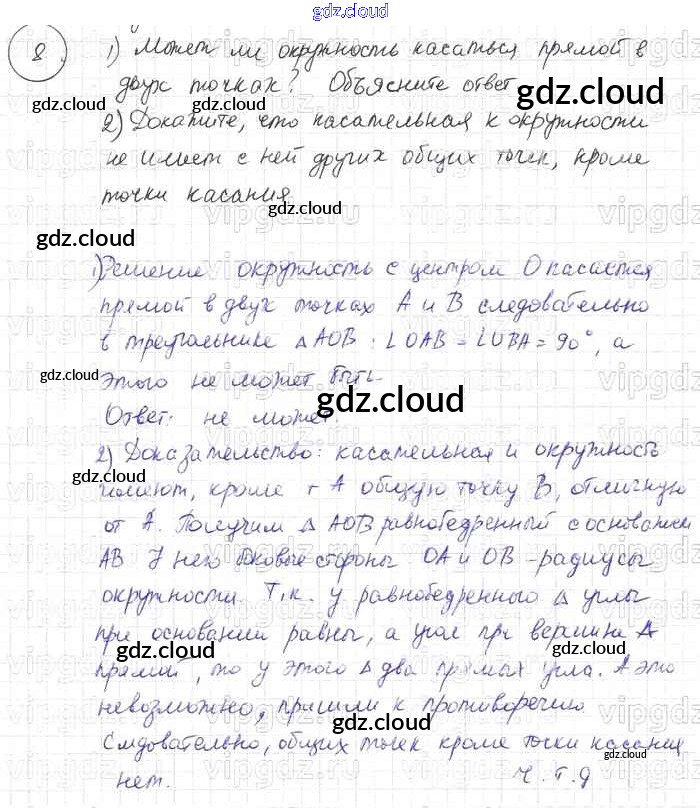 gdz.cloud
8. 1) Может ли окружность касаться прямой в
двух точках? Объясните ответ
gdz.cloud
gdz.cloud
2) Докажите, что касательная к окружности
не имеет с ней других общих точек, кроме
точки касания
gdz.cloud
gdz.cloud
1) Решение окружность с центром О касается
прямой в двух точках А и В следовательно
в треугольнике △АОВ: ∠ОАВ = ∠ОВА = 90°, а
gdz.cloud
этого не может быть.
gdz.cloud
Ответ: не может.
2) Доказательство: касательная и окружность
gdz.cloud
имеют, кроме т А общую точку В, отличную
от А. Получим △ АОВ равнобедренный с основанием
АВ У него боковые стороны ОА и ОВ - радиусы
gdz.cloud
окружности. Т.к. у равнобедренного △ углы
при основании равны, а угол при вершине А
gdz.cloud
прямой, то у этого △ два прямых угла. А это
невозможно, пришли к противоречию
gdz.cloud
Следовательно, общих точек кроме точки касания
нет. Ч.Т.Д
gdz.cloud